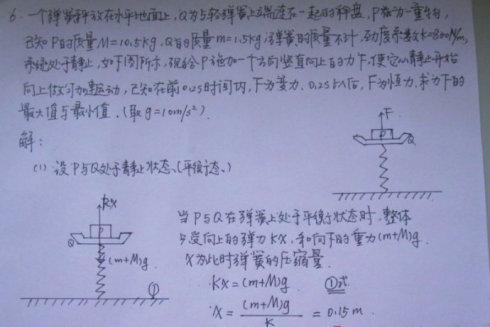 6. 一个弹簧秤放在水平地面上,Q为与轻弹簧上端连在一起的秤盘,P为一重物,
已知P的质量M=10.5kg,Q的质量m=1.5kg,弹簧的质量不计,劲度系数k=800N/m,
系统处于静止,如下图所示,现给P施加一个方向竖直向上的力F,使它从静止开始
向上做匀加速运动,已知在前0.2s时间内,F为变力,0.2s以后,F为恒力.求力F的
最大值与最小值.(取g=10m/s²).
解:
(1) 设P与Q处于静止状态、(平衡态、)
F
P
Q
KX
Q
(m+M)g
①
当P与Q在弹簧上处于平衡状态时,整体
受向上的弹力KX,和向下的重力(m+M)g.
X为此时弹簧的压缩量.
KX=(m+M)g ①式.
X=(m+M)g/K=0.15m.